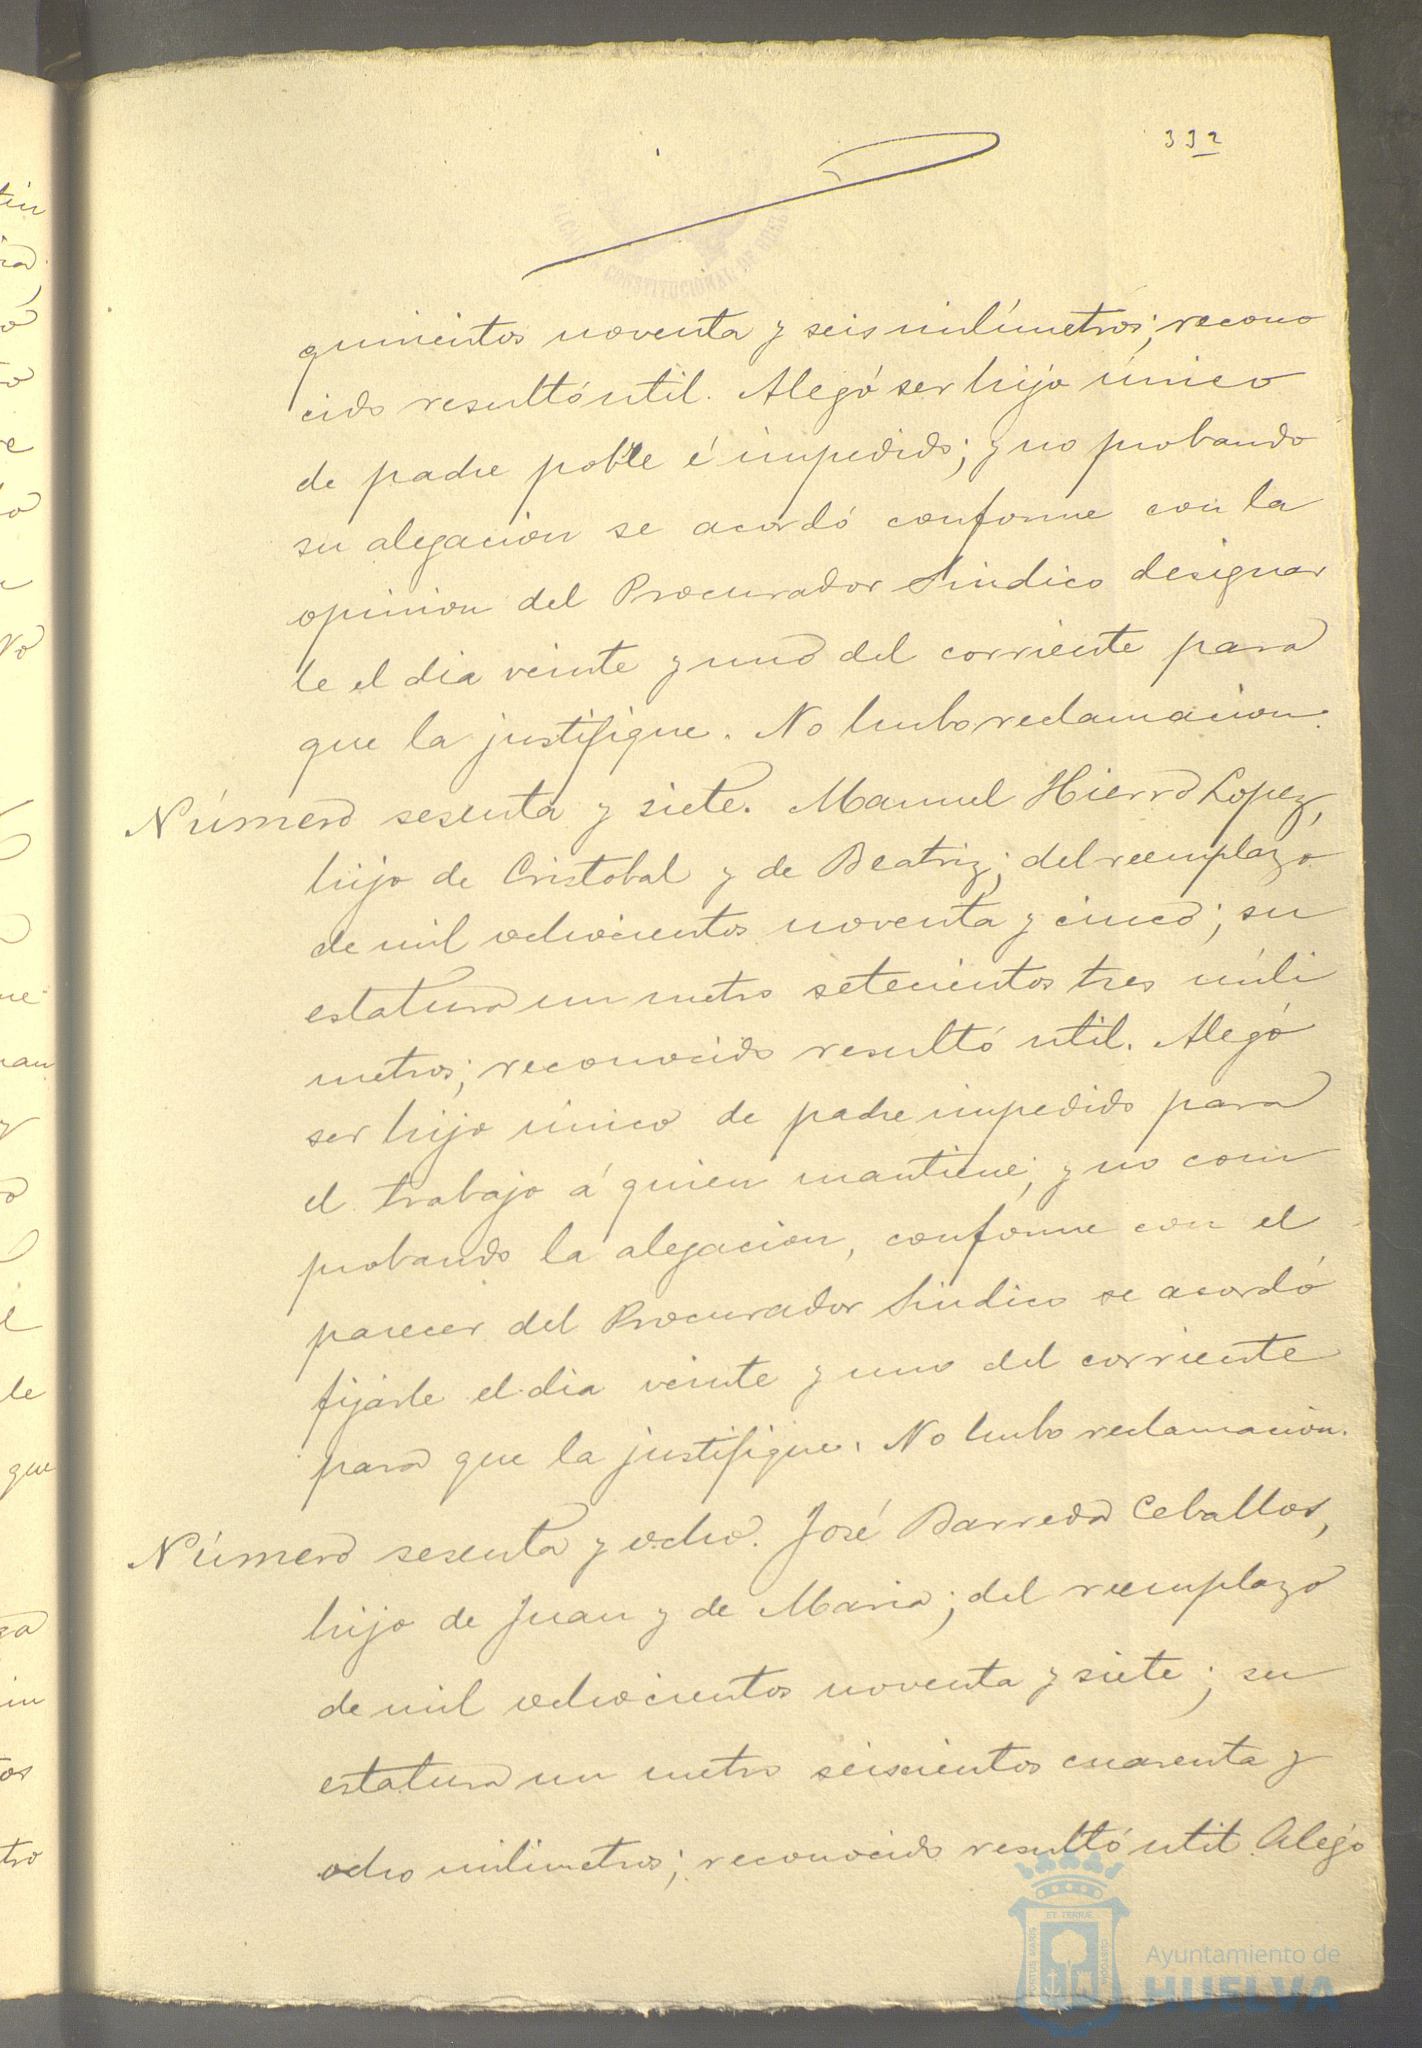 332
quinientos noventa y seis milímetros; recono
cido resultó util. Alegó ser hijo único
de padre pobre é impedido; y no probando
su alegacion se acordó conforme con la
opinion del Procurador Sindico designar
le el dia veinte y uno del corriente para
que la justifique. No hubo reclamacion.
Número sesenta y siete. Manuel Hierro Lopez,
hijo de Cristobal y de Beatriz; del reemplazo
de mil ochocientos noventa y cinco; su
estatura un metro setecientos tres mili
metros; reconocido resultó util. Alegó
ser hijo único de padre impedido para
el trabajo á quien mantiene; y no com
probando la alegacion, conforme con el
parecer del Procurador Sindico se acordó
fijarle el dia veinte y uno del corriente
para que la justifique. No hubo reclamacion.
Número sesenta y ocho. José Barreda Ceballos,
hijo de Juan y de Maria; del reemplazo
de mil ochocientos noventa y siete; su
estatura un metro seiscientos cuarenta y
ocho milimetros; reconocido resultó util. Alegó
Ayuntamiento de
HUELVA